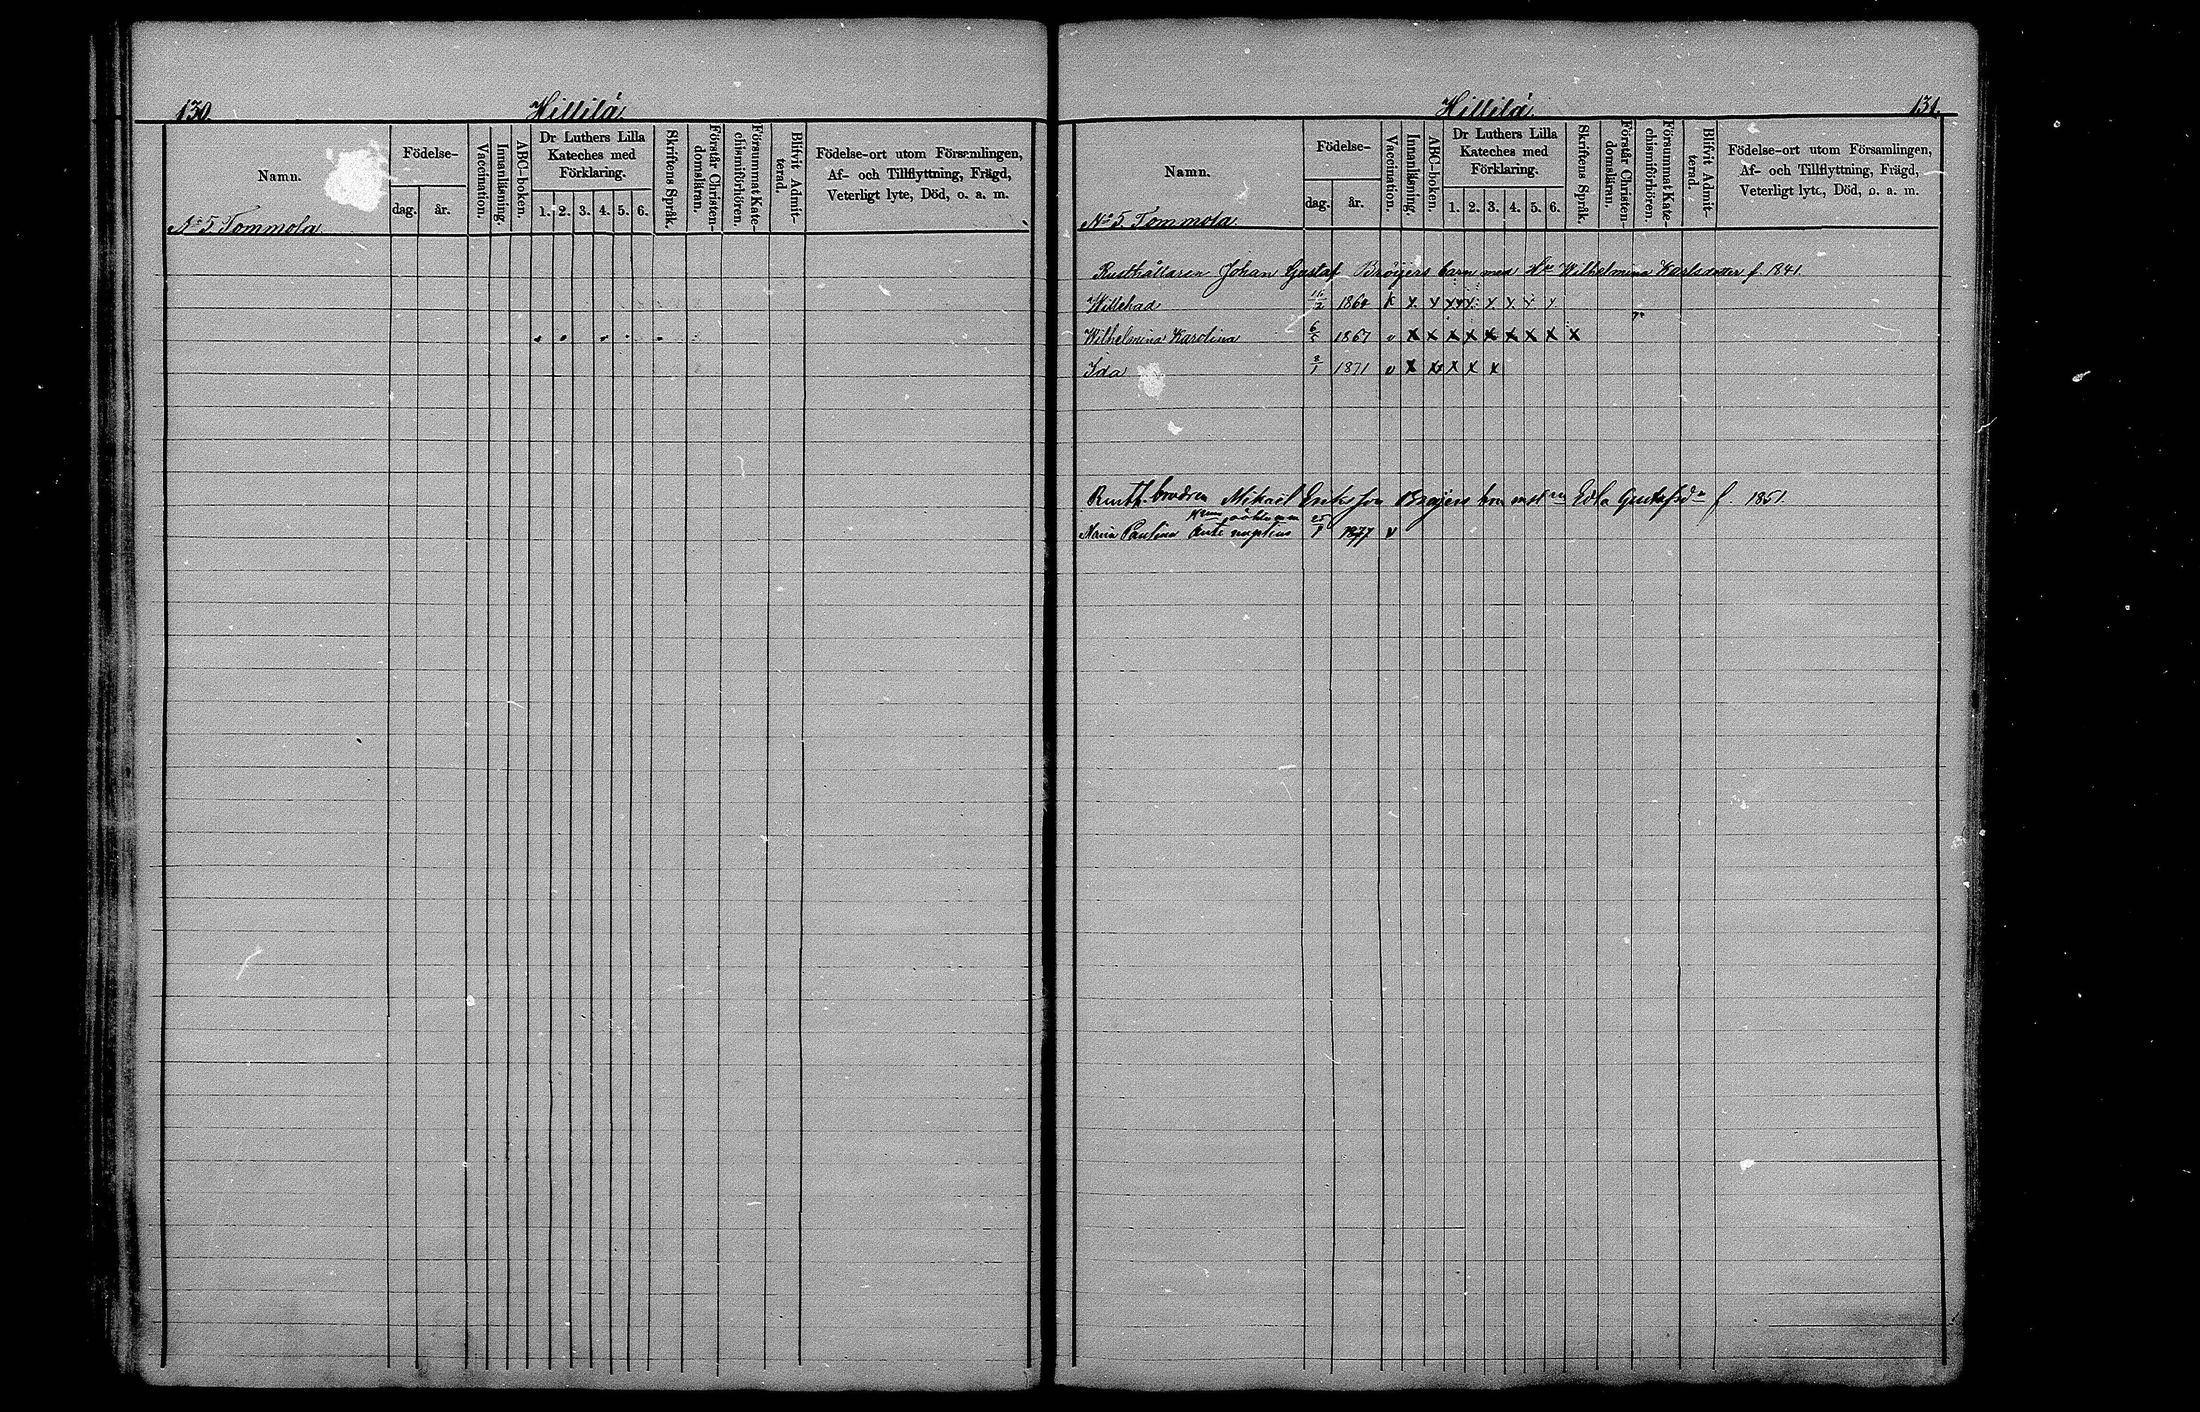 130.
Hillilä.
Namn.
Födelse-
dag. år.
Vaccination.
Innanläsning.
ABC-boken.
Dr Luthers Lilla
Kateches med
Förklaring.
1. 2. 3. 4. 5. 6.
Skriftens Språk.
Förstår Christen-
domsläran.
Försummat Kate-
chismiförhören.
Blifvit Admit-
terad.
Födelse-ort utom Församlingen,
Af- och Tillflyttning, Frägd,
Veterligt lyte, Död, o. a. m.
No 5 Tommola
Hillilä.
131.
Namn.
Födelse-
dag. år.
Vaccination.
Innanläsning.
ABC-boken.
Dr Luthers Lilla
Kateches med
Förklaring.
1. 2. 3. 4. 5. 6.
Skriftens Språk.
Förstår Christen-
domsläran.
Försummat Kate-
chismiförhören.
Blifvit Admit-
terad.
Födelse-ort utom Församlingen,
Af- och Tillflyttning, Frägd,
Veterligt lyte, Död, o. a. m.
No 5. Tommola.
Rusthållaren Johan Gustaf Bröijers barn med Wilhelmina Karlsdotter f. 1841.
Willehad 11/2 1864 x x x x x x x x
Wilhelmina Karolina 6/5 1867 v x x x x x x x x x
Ida 8/1 1871 v x x x x x
brodren Mikael Eriksson Bröijers Edla f. 1851
Maria Paulina ante nuptias 25/9 1877 v